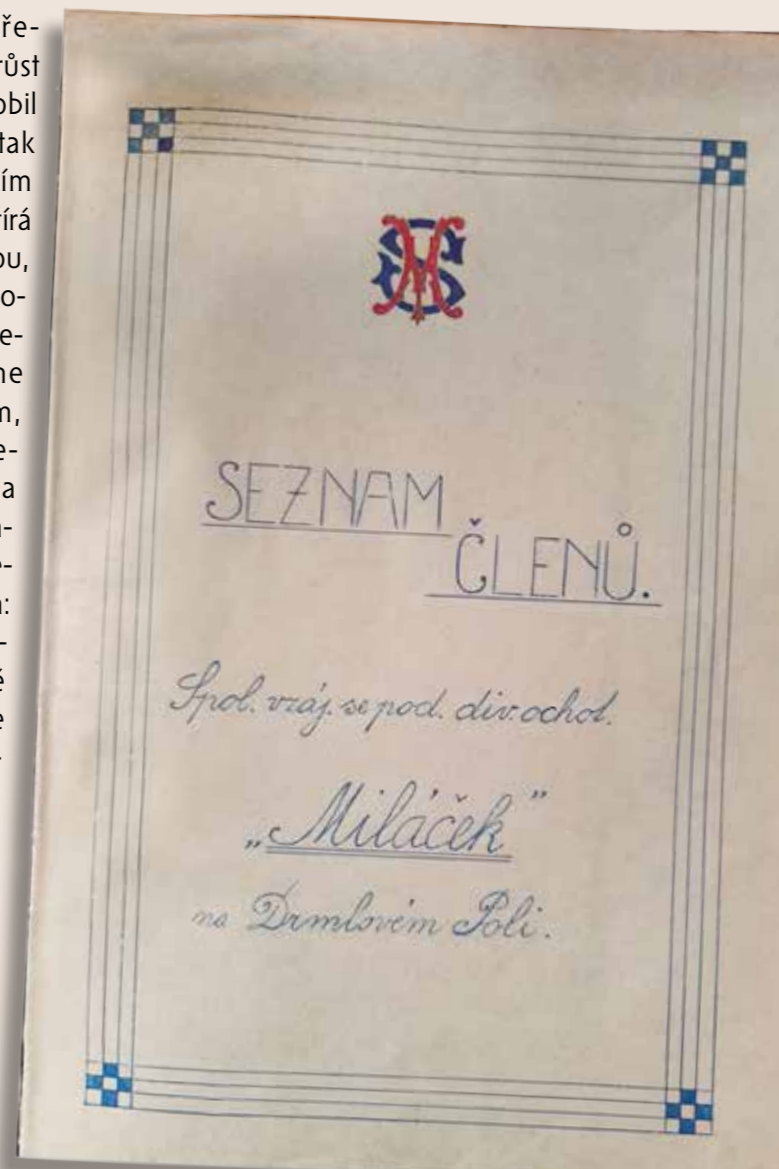 ře-
růst
obil
tak
ím
írá
ou,
o-
e-
ne
m,
e-
a
SM
SEZNAM
ČLENŮ.
Spol. vzáj. se pod. div. ochot.
„Miláček"
na Drmlovém Poli.